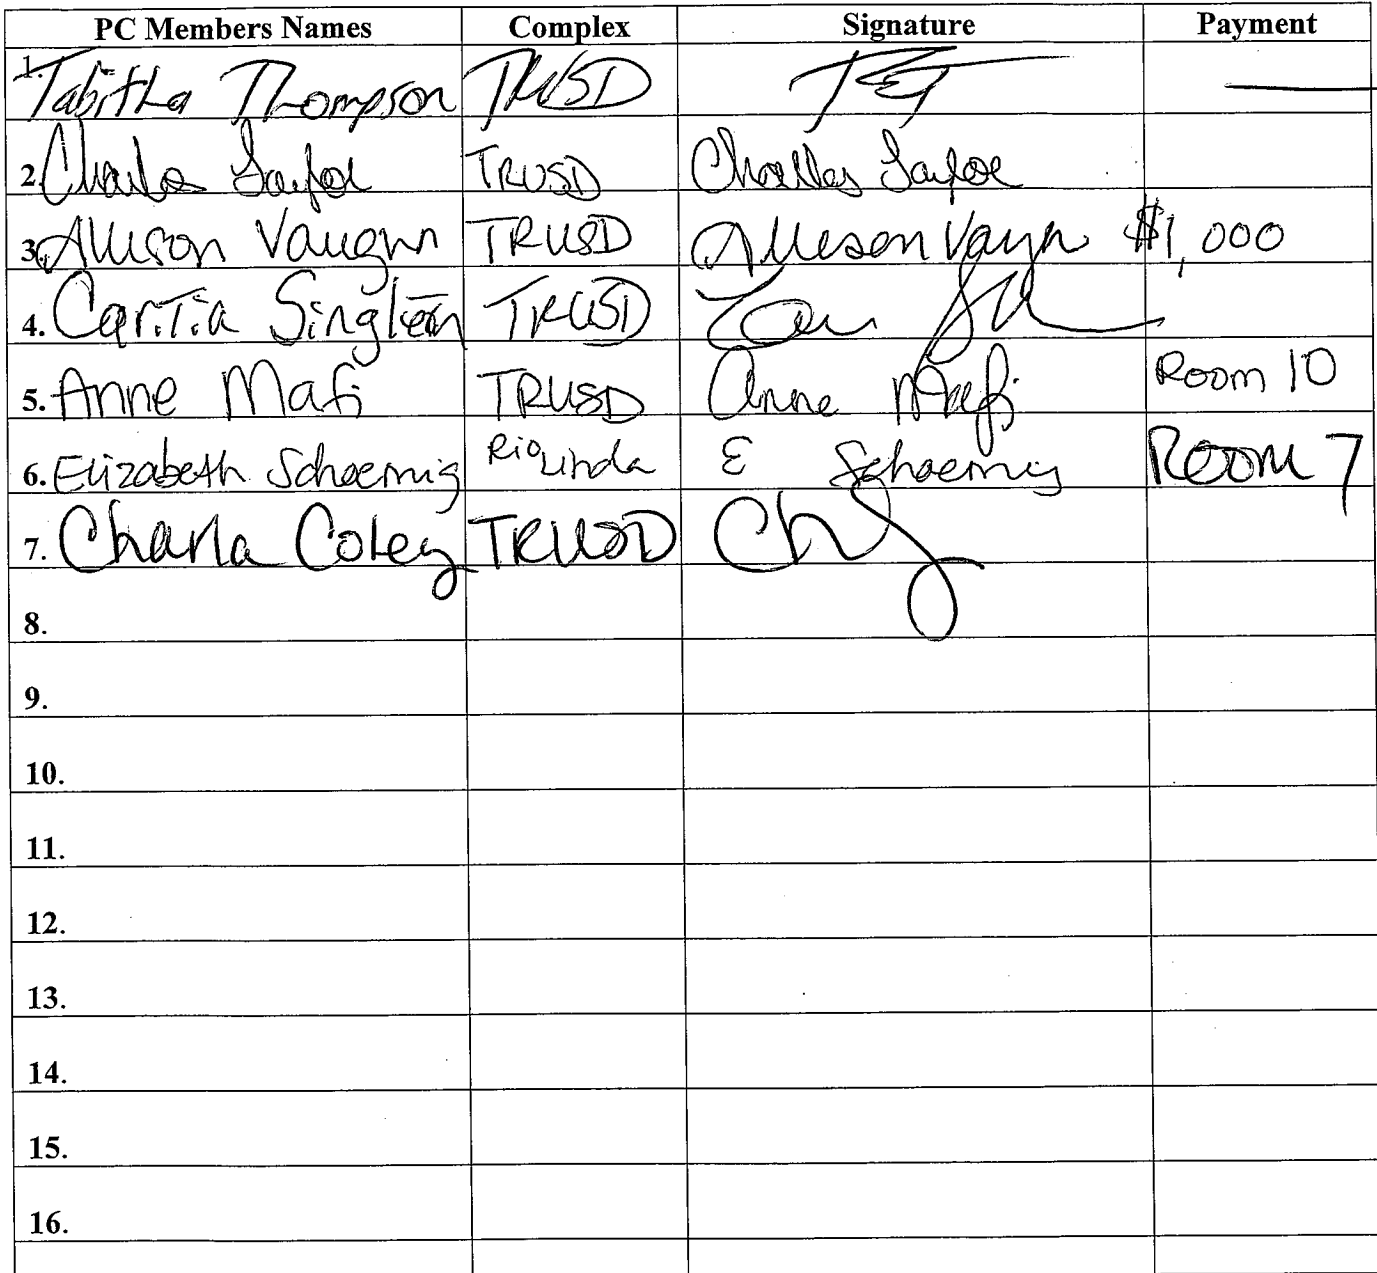 PC Members Names Complex Signature Payment
1. Tabitha Thompson TRUSD
2. TRUSD
3. Allison Vaughn TRUSD $1,000
4. Caritia Singleton TRUSD
5. Anne Mafi TRUSD Anne Mafi Room 10
6. Elizabeth Schoemig Rio Linda E Schoemig Room 7
7. Charla Coley TRUSD
8.
9.
10.
11.
12.
13.
14.
15.
16.